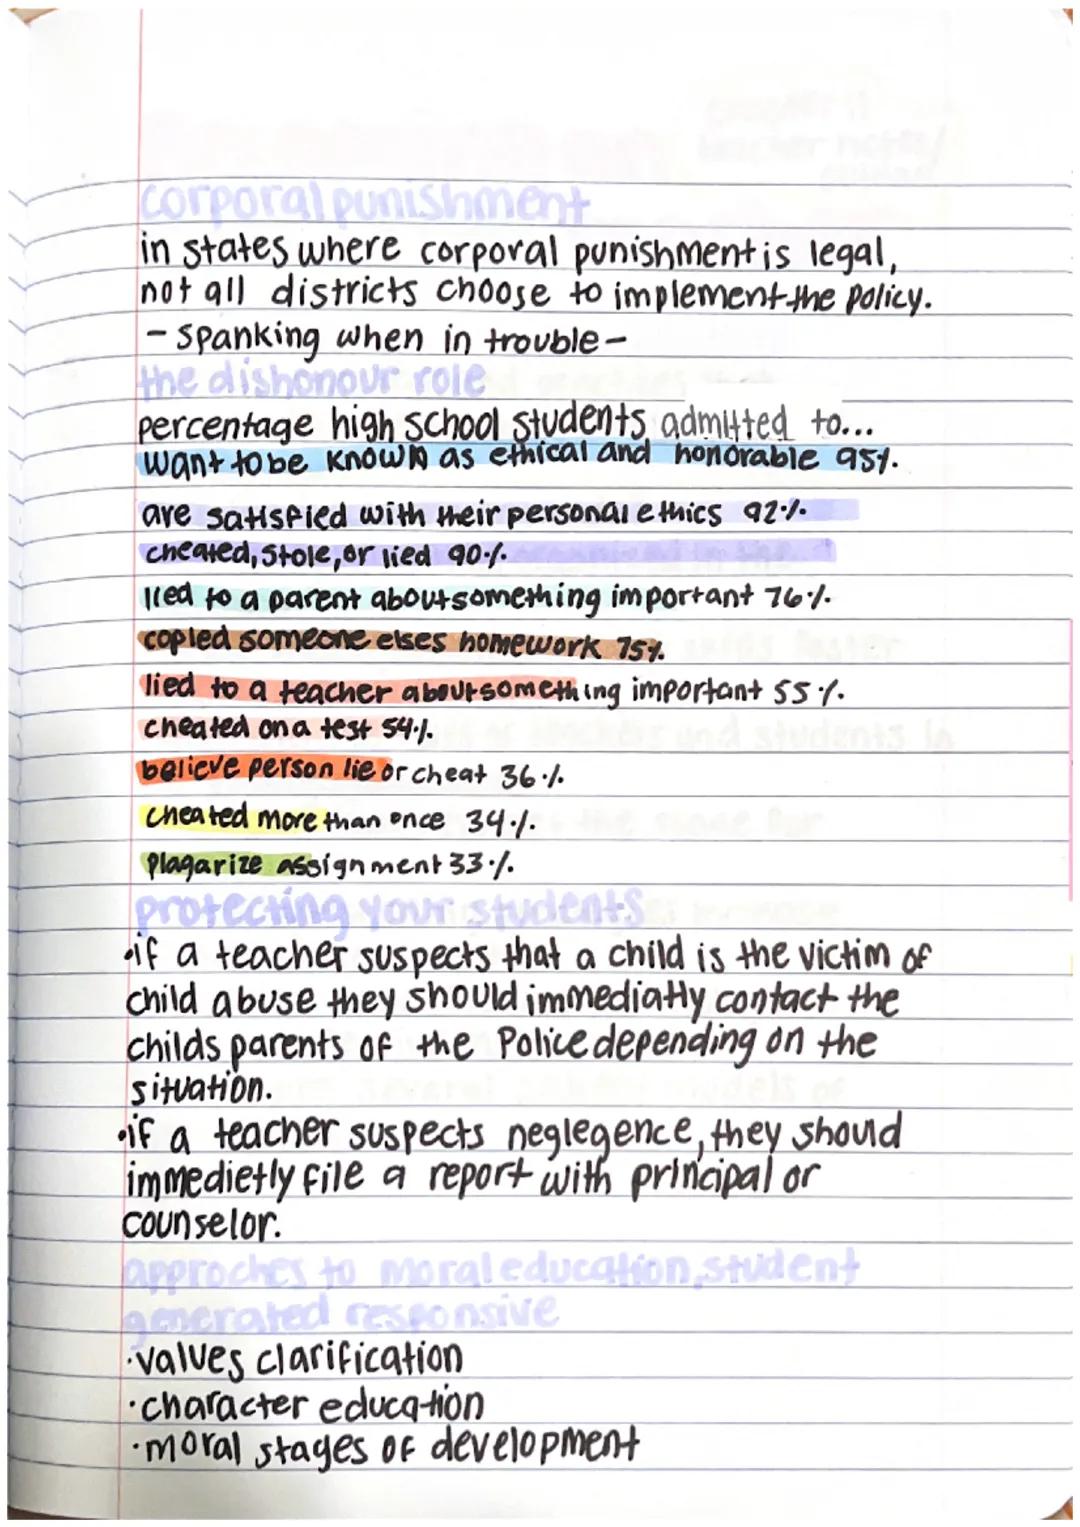 corporal punishment
in states where corporal punishment is legal,
not all districts choose to implement the policy.
- spanking when in trouble -
the dishonour role
percentage high school students admitted to...
want to be known as ethical and honorable 95%.
are satisfied with their personal ethics 92%.
cheated, stole, or lied 90%.
lied to a parent about something important 76%.
copied someone elses homework 75%.
lied to a teacher about something important 55%.
cheated on a test 54%.
believe person lie or cheat 36%.
cheated more than once 34%.
plagarize assignment 33%.
protecting your students
•if a teacher suspects that a child is the victim of
child abuse they should immediatly contact the
childs parents of the Police depending on the
situation.
•if a teacher suspects neglegence, they should
immedietly file a report with principal or
counselor.
approches to moral education, student
generated responsive
·values clarification
·character education
·moral stages of development